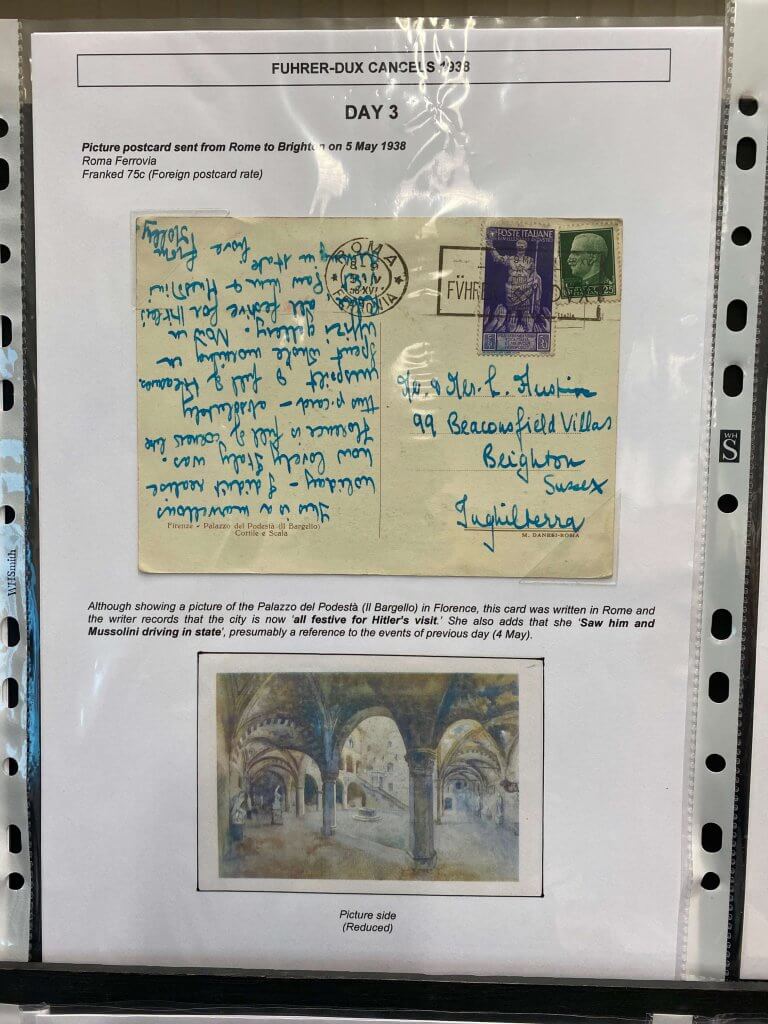 FUHRER-DUX CANCELS 1938
DAY 3
Picture postcard sent from Rome to Brighton on 5 May 1938
Roma Ferrovia
Franked 75c (Foreign postcard rate)
This is a marvellous
holiday – I didn't realise
how lovely Italy was.
Florence is full of corners like
this p.card – absolutely
unspoilt & full of
Spent whole morning in
Uffizi gallery. Now in
all festive for Hitler's
Saw him & Mussolini
in state
ROMA
FERROVIA
POSTE ITALIANE
FÜHRER
Mr. & Mrs. L. Austin
99 Beaconsfield Villas
Brighton
Sussex
Inghilterra
Firenze - Palazzo del Podestà (Il Bargello)
Cortile e Scala
M. DANESI-ROMA
Although showing a picture of the Palazzo del Podestà (Il Bargello) in Florence, this card was written in Rome and
the writer records that the city is now 'all festive for Hitler's visit.' She also adds that she 'Saw him and
Mussolini driving in state', presumably a reference to the events of previous day (4 May).
Picture side
(Reduced)
WHSmith
WH
S